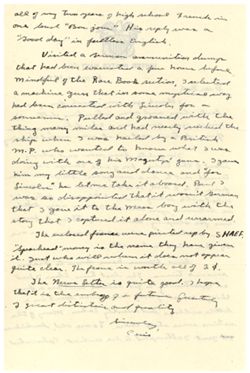 all of my two years of high school French in
one burst "Bon jour". His reply was a
"Good day" in faultless English.
Visited a German ammunition dump
that had been evacuated a few hours before.
Mindful of the Rare Book section, I selected
a machine gun that in some mystical way
had been connected with Lincoln for a
souvenir. Pulled and groaned with the
thing many miles and had nearly reached the
ship when I was halted by a British
M.P. who wanted to know what I was
doing with one of his Majesty's guns. I gave
him my little song and dance and "for
Lincoln" he let me take it aboard. But I
was so disappointed that it wasn't German
that I gave it to the mess boy with the
story that I captured it alone and unarmed.
The enclosed francs were printed up by SHAEF.
"Spearhead" money is the name they have given
it. Just who will redeem it does not appear
quite clear. The franc is worth all of 2¢.
The News Letter is quite good. I hope
that it is the embryo of a future Quarterly
of great distinction and quality.
Sincerely,